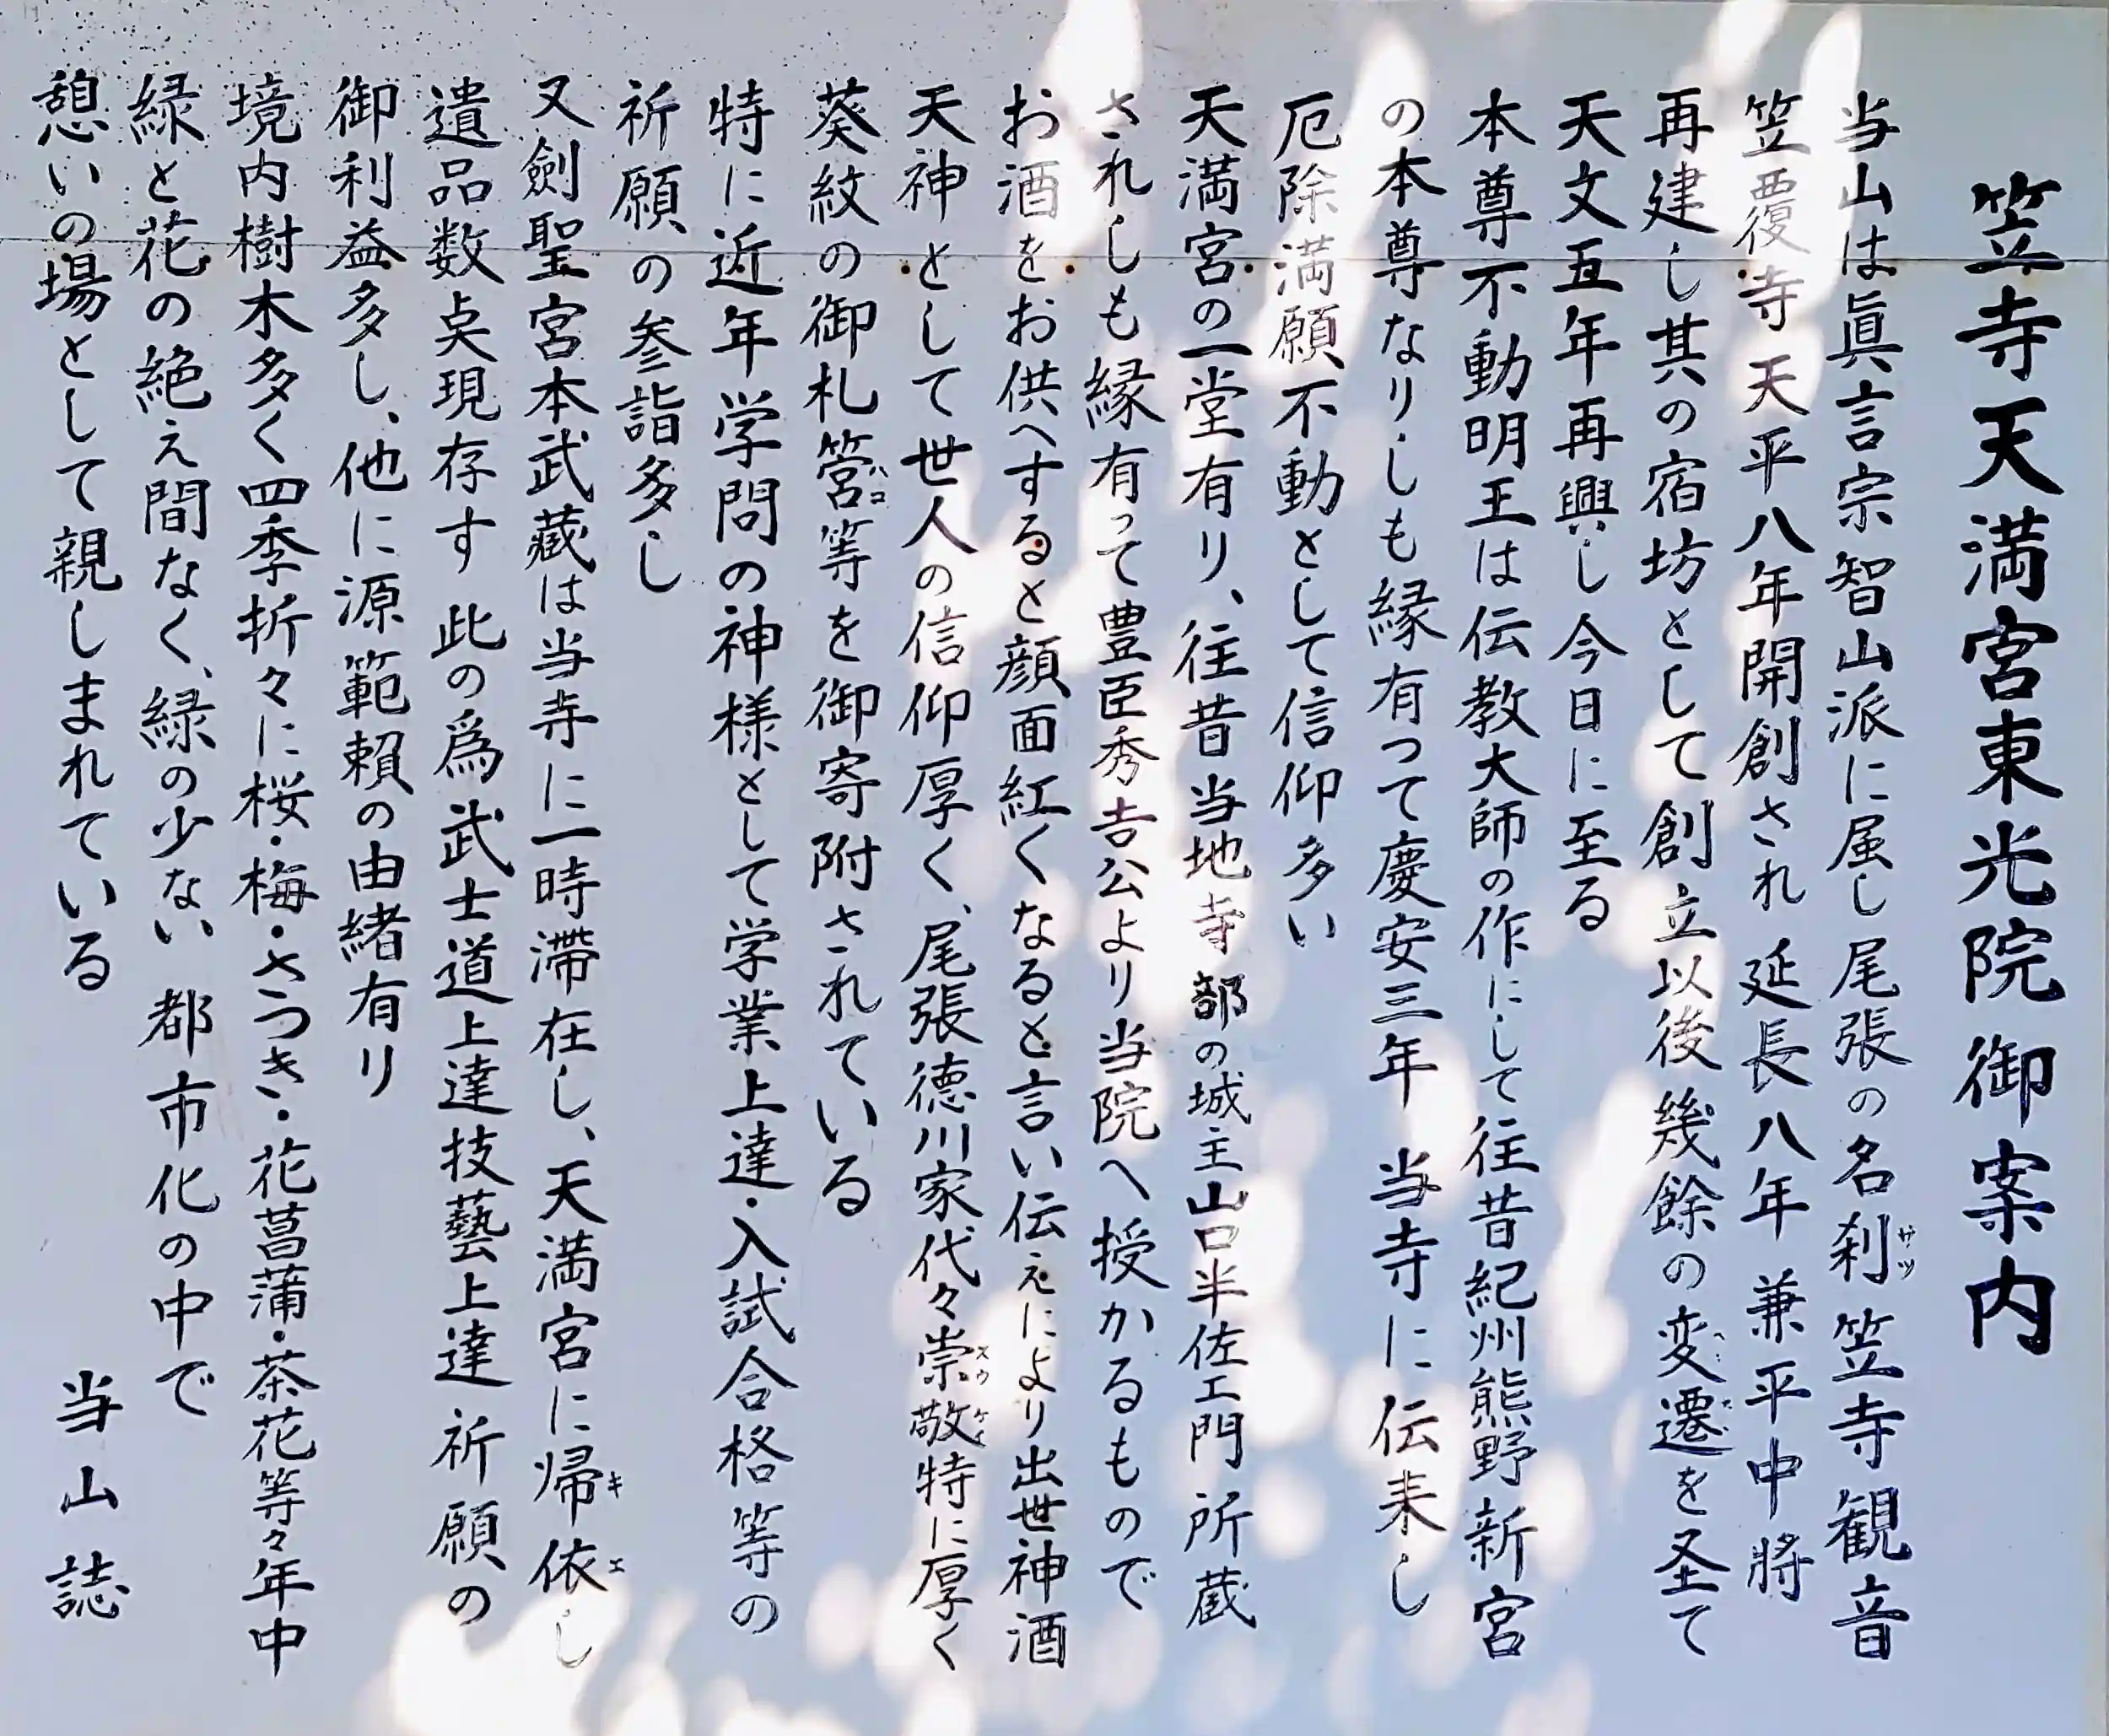 笠寺天満宮東光院御案内
当山は眞言宗智山派に属し尾張の名刹笠寺観音
サツ
笠覆寺天平八年開創され延長八年兼平中將
再建し其の宿坊として創立以後幾餘の変遷を圣て
天文五年再興し今日に至る
本尊不動明王は伝教大師の作にして往昔紀州熊野新宮
の本尊なりしも縁有って慶安三年当寺に伝来し
厄除満願不動として信仰多い
天満宮の一堂有り、往昔当地寺部の城主山口半佐エ門所蔵
されしも縁有って豊臣秀吉公より当院へ授かるもので
お酒をお供へすると顔面紅くなると言い伝えにより出世神酒
天神として世人の信仰厚く、尾張徳川家代々崇敬特に厚く
スウケイ
葵紋の御札筥等を御寄附されている
バコ
特に近年学問の神様として学業上達・入試合格等の
祈願の参詣多し
又劍聖宮本武蔵は当寺に一時滞在し、天満宮に帰依し
キエ
遺品数点現存す此の爲武士道上達技藝上達祈願の
御利益多し、他に源範頼の由緒有り
境内樹木多く四季折々に桜・梅・さつき・花菖蒲・茶花等々年中
緑と花の絶え間なく、緑の少ない都市化の中で
憩いの場として親しまれている
当山誌